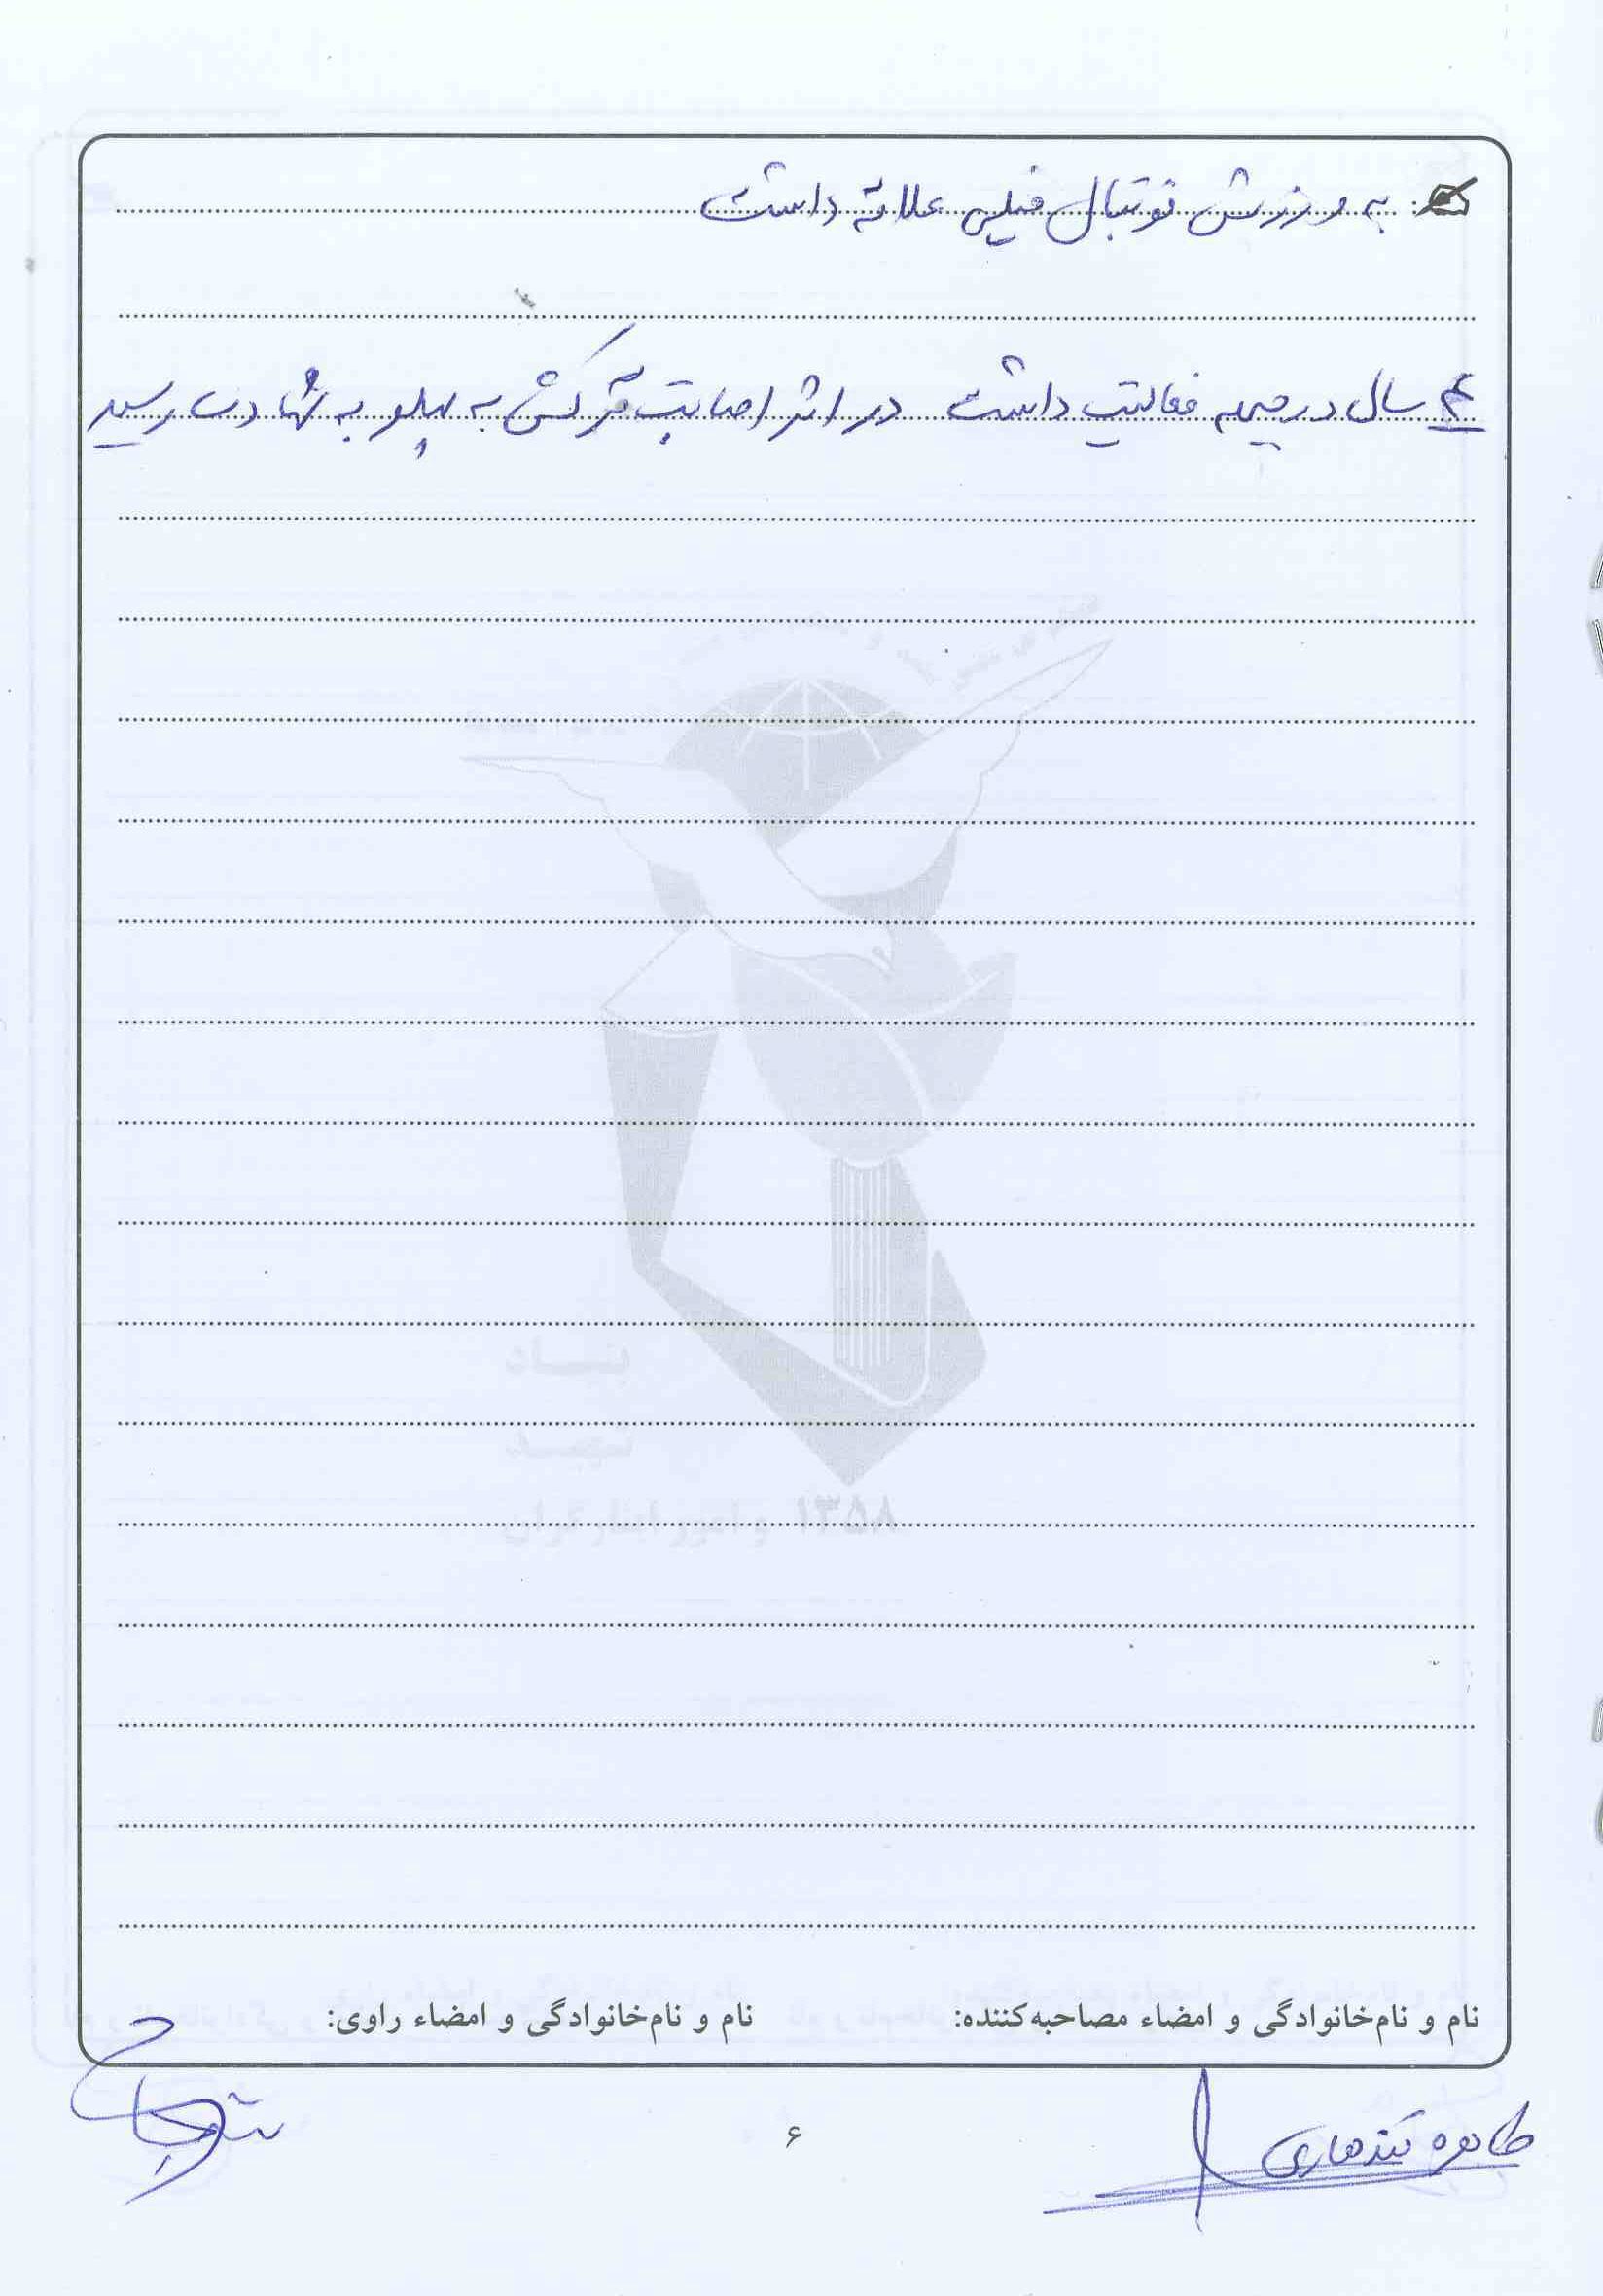 به ورزش فوتبال خیلی علاقه داشت
سال در جبهه فعالیت داشت در اثر اصابت ترکش به پهلو به شهادت رسید
بنیاد
شهید
و امور ایثارگران ۱۳۵۸
نام و نام‌خانوادگی و امضاء مصاحبه‌کننده: نام و نام‌خانوادگی و امضاء راوی:
طاهره قندهاری
۶